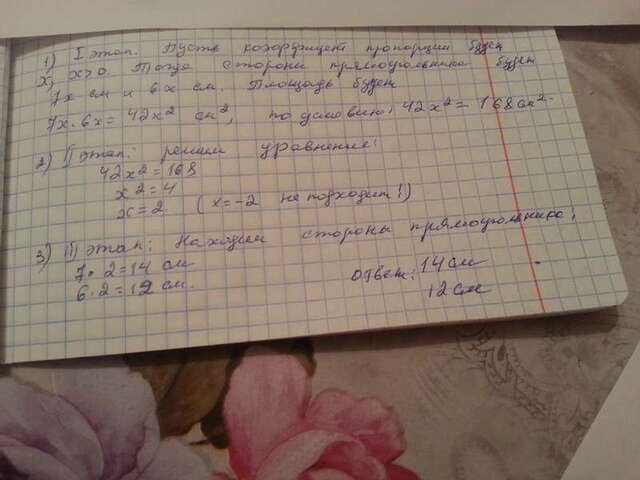 1) I этап. Пусть коэффициент пропорции будет
x, x>0. Тогда стороны прямоугольника будут
7x см и 6x см. Площадь будет
7x·6x=42x² см², по условию: 42x²=168см².
2) II этап: решим уравнение:
42x²=168
x²=4
x=2. (x=-2 не подходит!)
3) III этап: Находим стороны прямоугольника:
7·2=14 см
6·2=12 см.
Ответ: 14см
12см